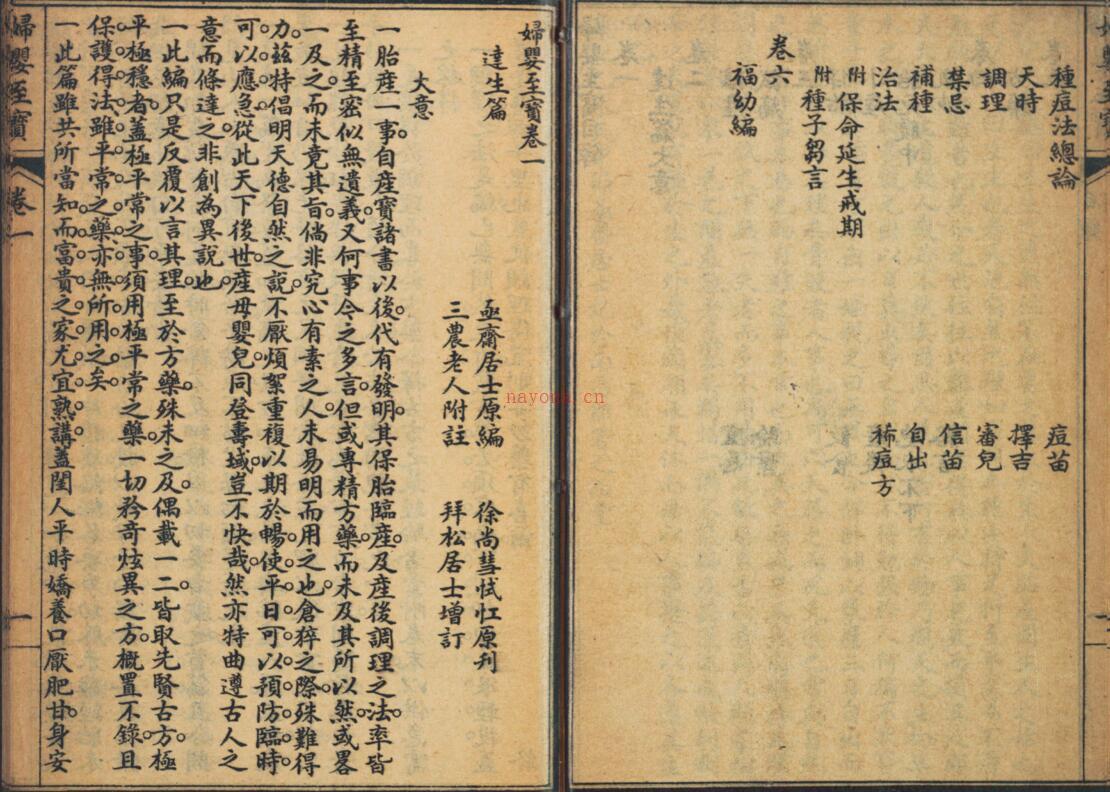 種痘法總論 痘苗
天時 擇吉
調理 審兒
禁忌 信苗
補種 自出
治法 稀痘方
附保命延生戒期
附種子芻言
卷六
福幼編
婦嬰至寶卷一
達生篇 亟齋居士原編 徐尚彗怴忹原刋
三農老人附註 拜松居士增訂
大意
一胎産一事自産寶諸書以後代有發明其保胎臨産及産後調理之法率皆
至精至密似無遺義又何事今之多言但或專精方藥而未及其所以然或畧
一及之而未竟其旨倘非究心有素之人未易明而用之也倉猝之際殊難得
力兹特倡明天德自然之説不厭煩絮重複以期於暢使平日可以預防臨時
可以應急從此天下後世産母嬰兒同登壽域豈不快哉然亦特曲遵古人之
意而條達之非創為異説也
一此編只是反覆以言其理至於方藥殊未之及偶載一二皆取先賢古方極
平極穩者蓋極平常之事須用極平常之藥一切矜奇炫異之方概置不錄且
保護得法雖平常之藥亦無所用之矣
一此篇雖共所當知而富貴之家尤宜熟講蓋閨人平時嬌養口厭肥甘身安
婦嬰至寶 卷一 一
nayona.cn